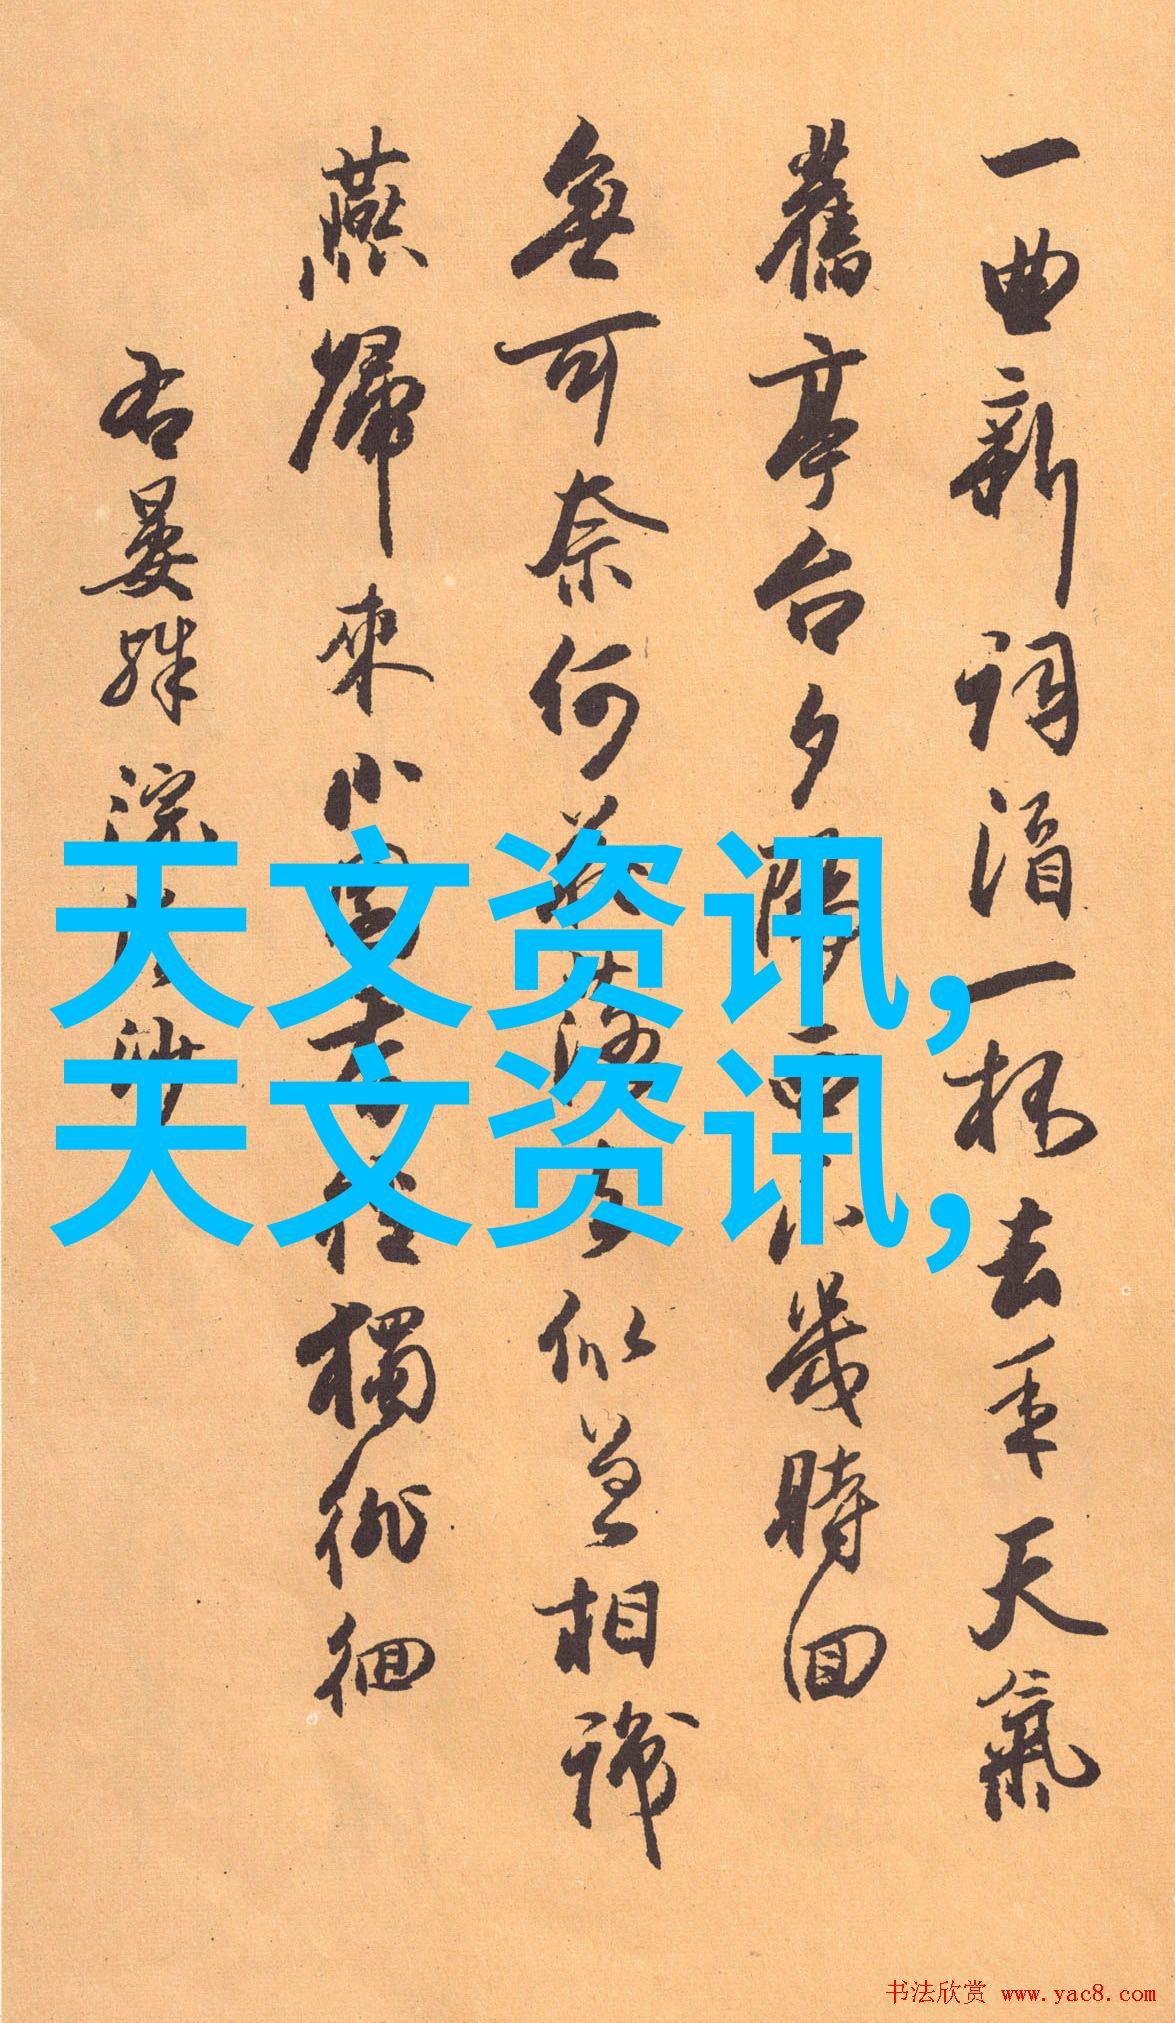 一曲新詞酒一杯去年天氣
舊亭台夕陽西下幾時回
無可奈何花落去似曾相識
燕歸來小園香徑獨徘徊
右晏殊浣溪沙
天文资讯,
天文资讯,
书法欣赏 www.yac8.com